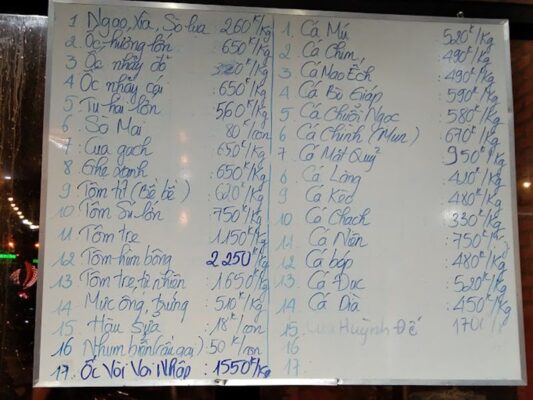 1 Ngao, Xía, Sò lụa : 260K/Kg
2 Ốc hương lớn : 650K/Kg
3 Ốc nhảy đỏ : 320K/Kg
4 Ốc nhảy cái : 650K/Kg
5 Tu hài lớn : 560K/Kg
6 Sò Mai : 80K/con
7 Cua gạch : 650K/Kg
8 Ghẹ xanh : 650K/Kg
9 Tôm tít (Bề bề) : 620K/Kg
10 Tôm Sú lớn : 750K/Kg
11 Tôm tre : 1150K/Kg
12 Tôm hùm bông 2250K/Kg
13 Tôm tre, tự nhiên : 1650K/Kg
14 Mực ống, trứng : 510K/Kg
15 Hàu Sữa : 18K/con
16 Nhum biển (cầu gai) 50K/con
17. Ốc Vòi Voi Nhập : 1550K/Kg
1. Cá Mú : 520K/Kg
2 Cá Chim, : 490K/Kg
3 Cá Mao Ếch : 490K/Kg
4 Cá Bò Giáp : 590K/Kg
5 Cá Chuồn Ngọc : 580K/Kg
6 Cá Chình (Mun) : 670K/Kg
7 Cá Mắt Quỷ : 950K/Kg
8 Cá Lăng : /Kg
9 Cá Kèo : 420K/Kg
10 Cá Chạch : 330K/Kg
11 Cá : 750K/Kg
12 Cá bớp : 480K/Kg
13 Cá Đục : 520K/Kg
14 Cá Dìa : 450K/Kg
15 Cua Huỳnh Đế
16
17